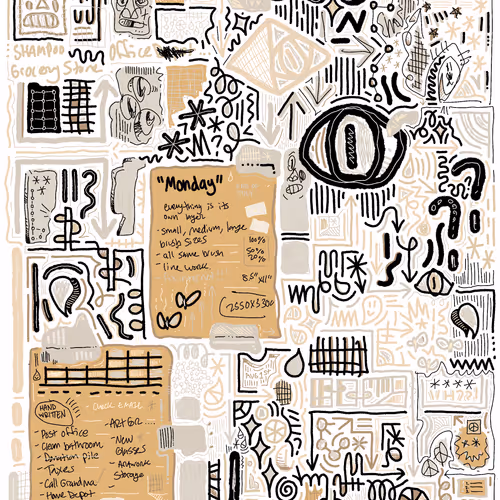 SHAMPOO
office
Grocery Store
"Monday"
everything is its
own layer
- small, medium, large
brush sizes
100%
50%
20%
- all same brush
- line work
8.5"x11"
2550X3300
HAND
WRITTEN
- Post office
- Clean bathroom
- Donation pile
- Taxes
- Call Grandma
- Home Depot
- ART for ....
- New
Glasses
- Artwork
Storage